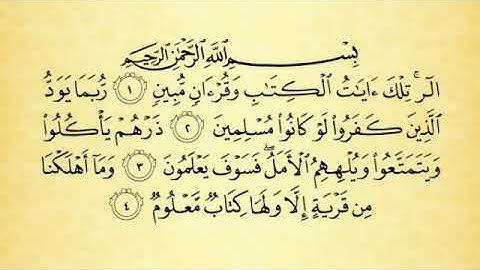 بِسْمِ اللَّهِ الرَّحْمَٰنِ الرَّحِيمِ
الٓرۚ تِلْكَ ءَايَٰتُ الْكِتَٰبِ وَقُرْءَانٍ مُّبِينٍ ١ رُّبَمَا يَوَدُّ
الَّذِينَ كَفَرُوا۟ لَوْ كَانُوا۟ مُسْلِمِينَ ٢ ذَرْهُمْ يَأْكُلُوا۟
وَيَتَمَتَّعُوا۟ وَيُلْهِهِمُ الْأَمَلُۖ فَسَوْفَ يَعْلَمُونَ ٣ وَمَآ أَهْلَكْنَا
مِن قَرْيَةٍ إِلَّا وَلَهَا كِتَابٌ مَّعْلُومٌ ٤